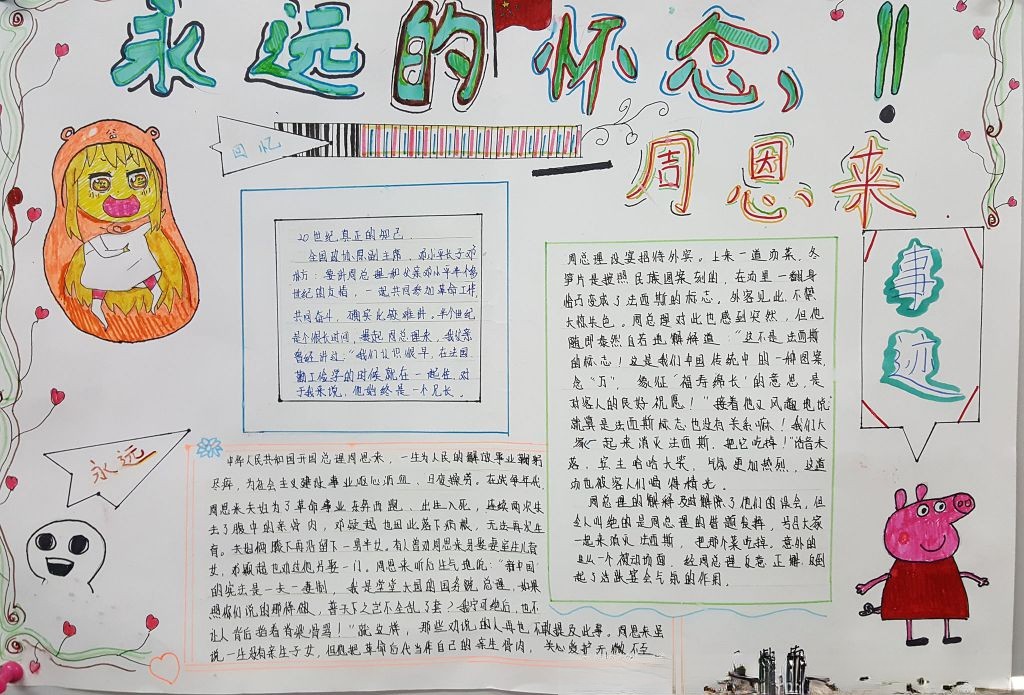 永远的怀念！！
周恩来
回忆
20世纪真正的知己
全国政协原副主席、邓小平长子邓
朴方：要讲周总理和父亲邓小平半个多
世纪的友情，一起共同参加革命工作，
共同奋斗，确实比较难讲。半个世纪
是个很长时间，提起周总理来，我父亲
曾经讲过："我们认识很早，在法国
勤工俭学的时候就在一起住，对
于我来说，他始终是一个兄长。
周总理设宴招待外宾。上来一道汤菜，冬
笋片是按照民族图案刻的，在汤里一翻身
恰巧变成了法西斯的标志。外客见此，不禁
大惊失色。周总理对此也感到突然，但他
随即泰然自若地解释道："这不是法西斯
的标志！这是我们中国传统中的一种图案，
念"万"，象征"福寿绵长"的意思，是
对客人的良好祝愿！"接着他又风趣地说：
就算是法西斯标志也没有关系嘛！我们大
家一起来消灭法西斯，把它吃掉！"话音未
落，宾主哈哈大笑，气氛更加热烈，这道
汤也被客人们喝得精光。
周总理的解释及时解除了他们的误会，但
令人叫绝的是周总理的借题发挥，号召大家
一起来消灭法西斯，把那个菜吃掉。意外的
出一个被动场面，经周总理反意正解，反倒
起了活跃宴会气氛的作用。
事
迹
永远
中华人民共和国开国总理周恩来，一生为人民的解放事业鞠躬
尽瘁，为社会主义建设事业呕心沥血、日夜操劳。在战争年代，
周恩来夫妇为了革命事业东奔西跑、出生入死，连续两次失
去了腹中的亲骨肉，邓颖超也因此落下病根，无法再次生
育。夫妇俩膝下再没留下一男半女。有人曾劝周恩来另娶妻室生儿育
女，邓颖超也劝过他另娶一门。周恩来听后生气地说："新中国
的宪法是一夫一妻制，我是堂堂大国的国务院总理，如果
照你们说的那样做，普天下之岂不全乱了套？我宁可绝后，也不
让人背后指着脊梁骨骂！"就这样，那些劝说的人再也不敢提及此事。周恩来虽
说一生没有亲生子女，但他把革命后代当作自己的亲生骨肉，关心爱护无微不至